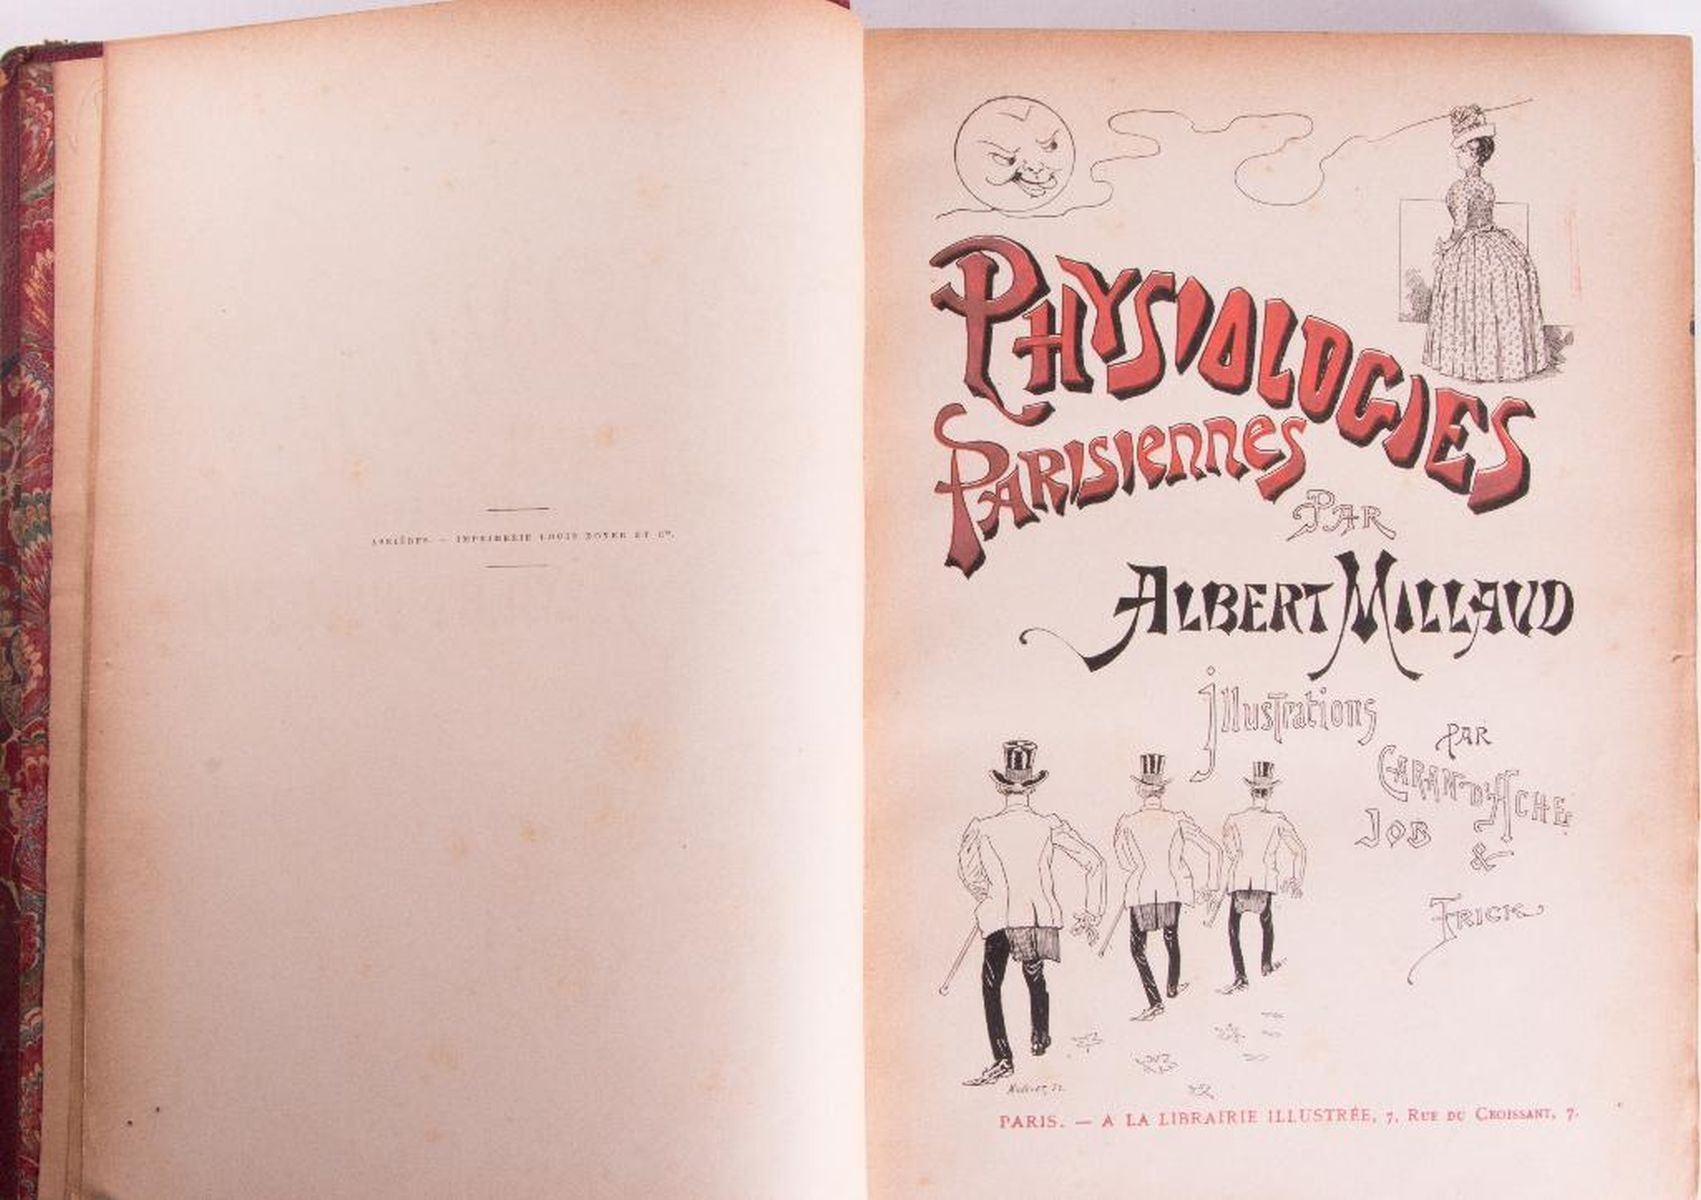 ASNIÈRES. — IMPRIMERIE LOUIS BOYER ET Cie.
PHYSIOLOGIES
PARISIENNES
PAR
ALBERT MILLAUD
illustrations
PAR
CARAN-D'ACHE
JOB &
FRICK
PARIS. — A LA LIBRAIRIE ILLUSTRÉE, 7, RUE DU CROISSANT, 7.